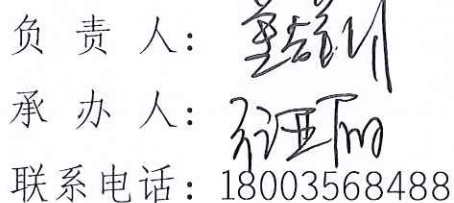 负责人：
承办人：
联系电话：18003568488